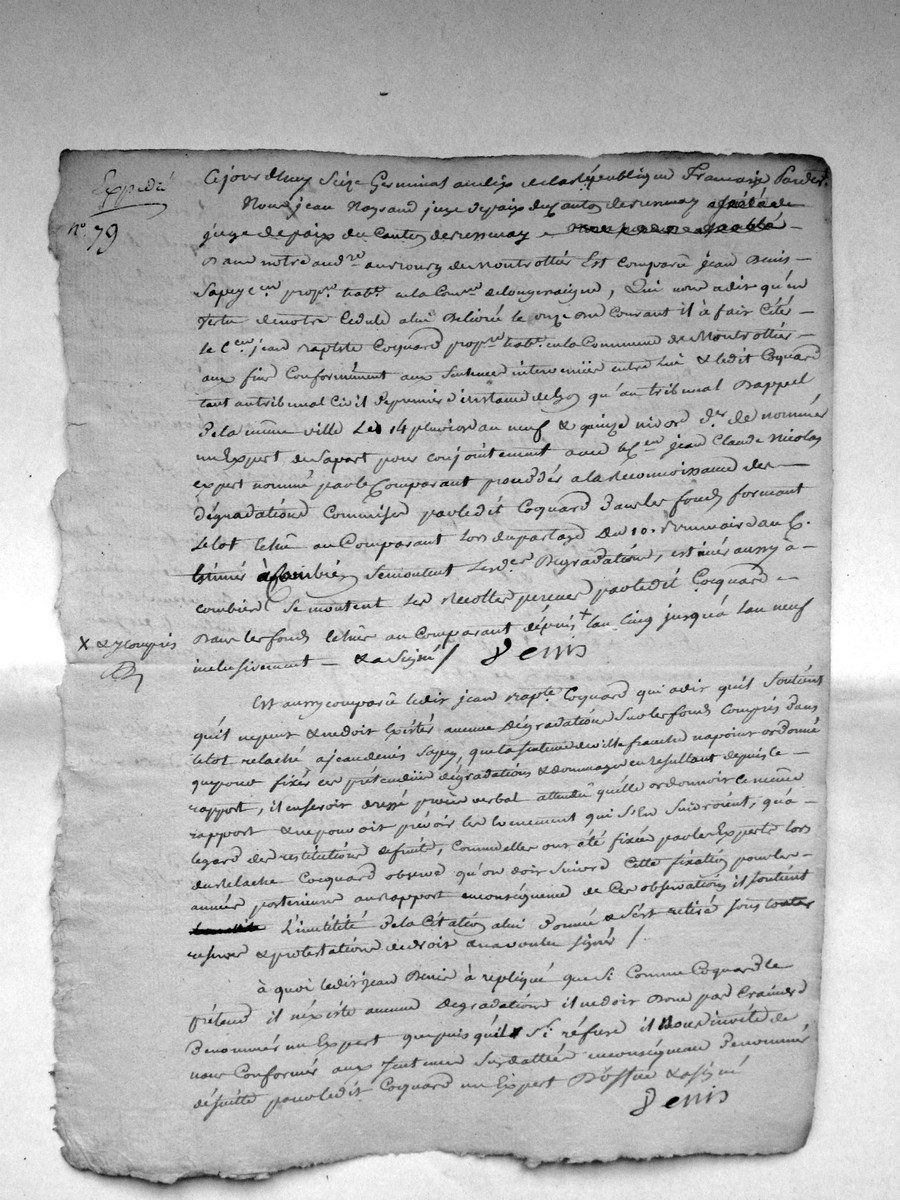 Expedié
n° 79
Cejourd'huy Seize Germinal an dix de la République Française Pardev.
Nous jean Noyraud juge de paix du canton de
juge de paix du Canton de
Dans notre aud.re au Bourg de Montrottier Est comparu jean Denis
Sapey c.en prop.re hab.t en la Com.ne de Longessaigne, Qui nous a dit qu'en
vertu de notre Cedule a lui Délivré le onze du Courant il à fait Citér
le C.en jean Baptiste Coquard prop.re hab.t en la Commune de Montrottier
aux fins Conformément aux Sentences intervenües entre lui & ledit Coquard
tant au tribunal Civil de premiere instance de Lyon qu'au tribunal D'appel
De la même ville Les 14 pluviose an neuf & quinze nivose d.er de nommér
un Expert de Sa part pour conjointement avec le C.en jean Claude Nicolas
expert nommé par le Comparant procedér a la Reconnoissance des
dégradations Commises par ledit Coquard Dans les fonds formant
Le lot Echu au Comparant Lors du partage Du 10. Brumaire an 6.
à combien Se montent Lesd.es Dégradations, estimér aussy à
combien Se montent Les Recoltes percues par ledit Coquard
Dans les fonds Echus au Comparant dépuis + l'an Cinq jusqu'à l'an neuf
X & y Compris
inclusivement — & a Signé / Denis
Est aussy comparu ledit jean Bapt.e Coquard qui a dit qu'il Soutient
qu'il ne peut & ne doit Existér aucune Dégradations Sur les fonds Compris Dans
le lot relaché a jean denis Sapey, que la Sentence de ville franche n'a point ordonné
que pour fixér ces prétendües dégradations & dommages en resultant depuis le
rapport, il en seroit dressé procès verbal attendu qu'elle ordonnoit le même
rapport & ne pouvoit prévoir les Evenement qui S'En Suivroient, qu'à
l'égard des restitutions de fruits, Comme elles ont été fixées par les Experts lors
du relache Coquard observe qu'on doit Suivre Cette fixation pour les
années posterieures au rapport en conséquence de Ces observations il Soutient
L'inutilité De la Citation a lui Donnée & S'est retiré Sous toutes
reserves & protestations de droit & n'a voulu Signér /.
à quoi ledit jean Denis à repliqué que Si Comme Coquard le
prétend il n'éxiste aucune Dégradations il ne doit Donc pas Craindre
De nommér un Expert que puis qu'il S'i réfuse il Nous invite de
nous Conformér aux Sentences Susdattées en conséquence De nommér
d'office pour ledit Coquard un Expert & a signé
Denis